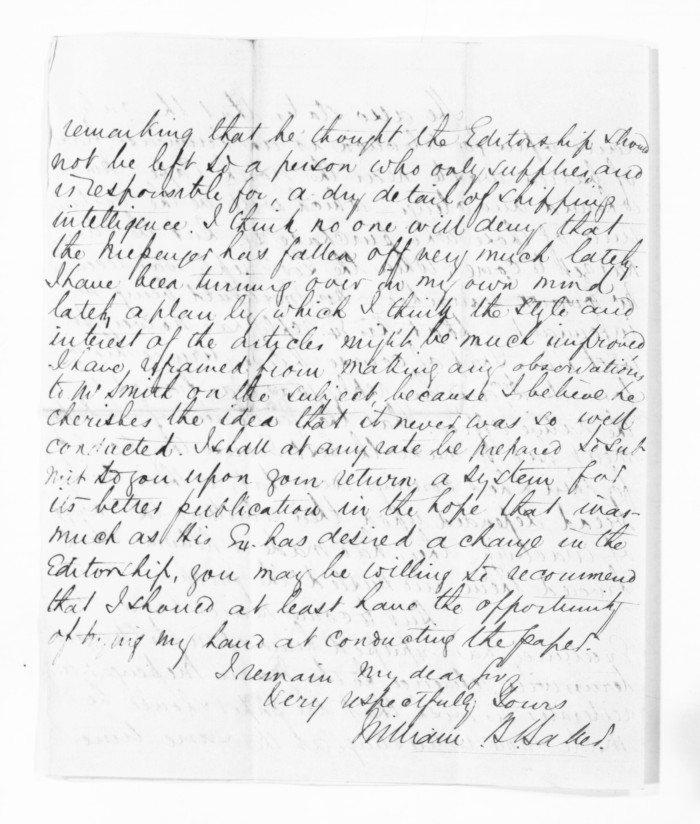 remarking that he thought the Editorship should
not be left to a person who only supplies, and
is responsible for, a dry detail of shipping
intelligence. I think no one will deny that
the Messenger has fallen off very much lately
I have been turning over in my own mind,
lately, a plan by which I think the style and
interest of the articles might be much improved
I have, refrained from making any observations
to Mr Smith on the subject, because I believe he
cherishes the idea that it never was so well
conducted. I shall at any rate be prepared to sub
mit to you upon your return a system for
its better publication in the hope that inas-
much as His Ex. has desired a change in the
Editorship, you may be willing to recommend
that I should at least have the opportunity
of trying my hand at conducting the paper.
I remain my dear Sir
Very respectfully Yours
William B.